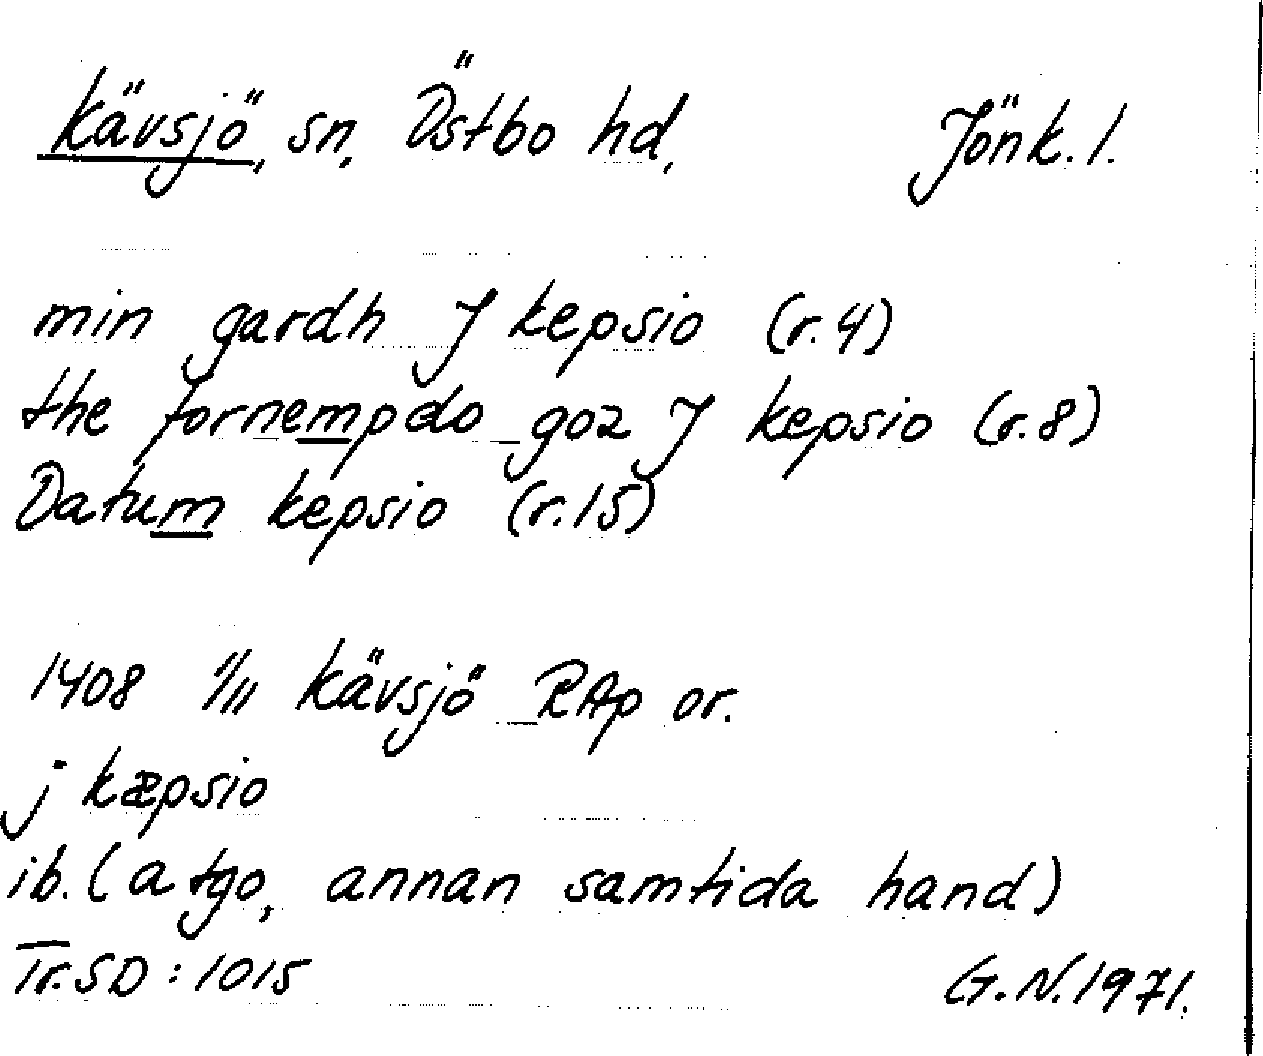 Kävsjö, sn, Östbo hd, Jönk. l.
min gardh J kepsio (r.4)
the fornempdo goz J kepsio (r.8)
Datum kepsio (r.15)
1408 1/11 Kävsjö RAp or.
j kæpsio
ib. (a tgo, annan samtida hand)
Tr. SD : 1015 G.N. 1971.